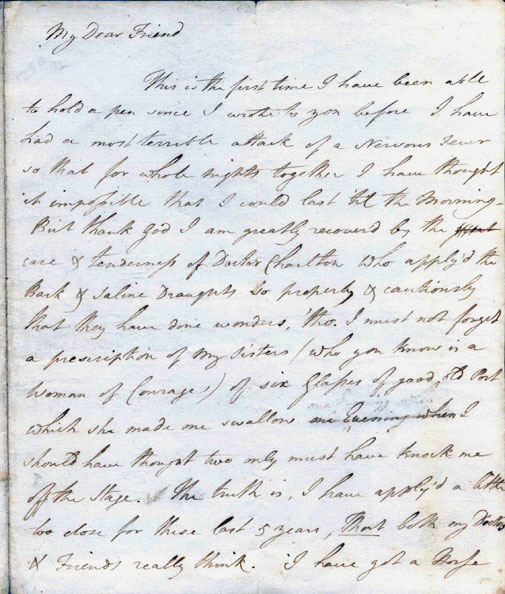 My Dear Friend
This is the first time I have been able
to hold a pen since I wrote to you before I have
had a most terrible attack of a Nervous Fever
so that for whole nights together I have thought
it impossible that I could last 'til the Morning -
But thank God I am greatly recoverd by the
care & tenderness of Doctor Charlton who apply'd the
Bark & Saline Draughts so properly & cautiously
that they have done wonders, 'tho. I must not forget
a prescription of my Sisters (who you know is a
Woman of Courage) of six Glasses of good, old Port
which she made me swallow one Evening when I
should have thought two only must have knock me
off the Stage. The truth is, I have apply'd a little
too close for these last 5 years, that both my Doctor
& Friends really think. I have got a Horse